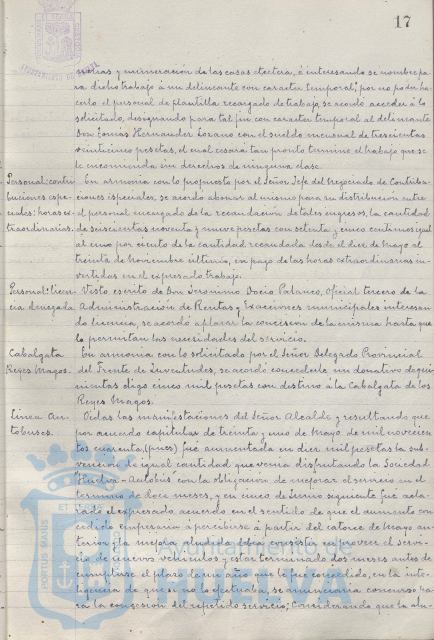 17
y numeración de las casas etcetera, é interesando se nombre pa-
ra dicho trabajo á un delineante con caracter temporal, por no poder ha-
cerlo el personal de plantilla recargado de trabajo, se acordó acceder á lo
solicitado, designando para tal fin con caracter temporal al delineante
Don Tomás Hernandez Lozano con el sueldo mensual de trescientas
veinticinco pesetas, el cual cesará tan pronto termine el trabajo que se
le encomienda sin derechos de ninguna clase.
Personal: contri
buciones espe-
ciales: horas ex-
traordinarias.
En armonia con lo propuesto por el Señor Jefe del Negociado de Contribu-
ciones especiales, se acordó abonar al mismo para su distribucion entre
el personal encargado de la recaudación de tales ingresos, la cantidad
de seiscientas noventa y nueve pesetas con setenta y cinco centimos igual
al cinco por ciento de la cantidad recaudada desde el diez de Mayo al
treinta de Noviembre último, en pago de las horas extraordinarias in-
vertidas en el expresado trabajo.
Personal: licen
cia denegada
Visto escrito de Don Jeronimo Docio Palanco, Oficial tercero de la
Administración de Rentas y Exacciones municipales interesan-
do licencia, se acordó aplazar la concesion de la misma hasta que
lo permitan las necesidades del servicio.
Cabalgata
Reyes Magos.
En armonia con lo solicitado por el Señor Delegado Provincial
del Frente de Juventudes, se acordó concederle un donativo de qui-
nientas digo cinco mil pesetas con destino á la Cabalgata de los
Reyes Magos.
Linea Au-
tobuses.
Oidas las manifestaciones del Señor Alcalde y resultando que
por acuerdo capitular de treinta y uno de Mayo de mil novecien-
tos cuarenta, (pues) fué aumentada en diez mil pesetas la sub-
vención de igual cantidad que venia disfrutando la Sociedad
Huelva-Autobús con la obligacion de mejorar el servicio en el
termino de doce meses, y en cinco de Junio siguiente fué acla-
rado el expresado acuerdo en el sentido de que el aumento con-
cedido empezaria á percibirse á partir del catorce de Mayo an-
terior y la mejora aludida debia consistir en proveer el servi-
cio de nuevos vehiculos y estar terminado dos meses antes de
cumplirse el plazo de un año que le fué concedido, en la inte-
ligencia de que si no lo efectuaba, se anunciaria concurso pa-
ra la concesion del repetido servicio; Considerando que la alu-
Ayuntamiento de
HUELVA
PORTUS MARIS